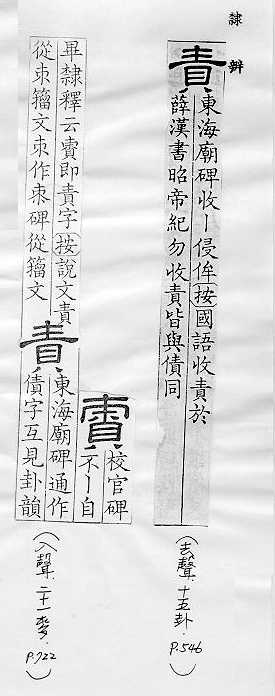 隸辨
責
東海廟碑收丨侵侔按國語收責於
薛漢書昭帝紀勿收責皆與債同
(去聲.十五卦.P.546)
賣
校官碑
不丨自
畢隸釋云賣即責字按說文責
從朿籀文朿作朿碑從籀文
責
東海廟碑通作
債字互見卦韻
(入聲.二十一麥.P.722)